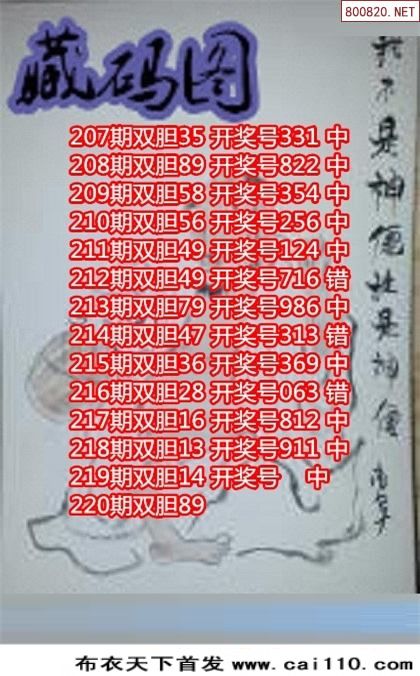 800820.NET
藏码图
207期双胆35 开奖号331 中
208期双胆89 开奖号822 中
209期双胆58 开奖号354 中
210期双胆56 开奖号256 中
211期双胆49 开奖号124 中
212期双胆49 开奖号716 错
213期双胆79 开奖号986 中
214期双胆47 开奖号313 错
215期双胆36 开奖号369 中
216期双胆28 开奖号063 错
217期双胆16 开奖号812 中
218期双胆13 开奖号911 中
219期双胆14 开奖号 中
220期双胆89
是神
是神
布衣天下首发 www.cai110.com